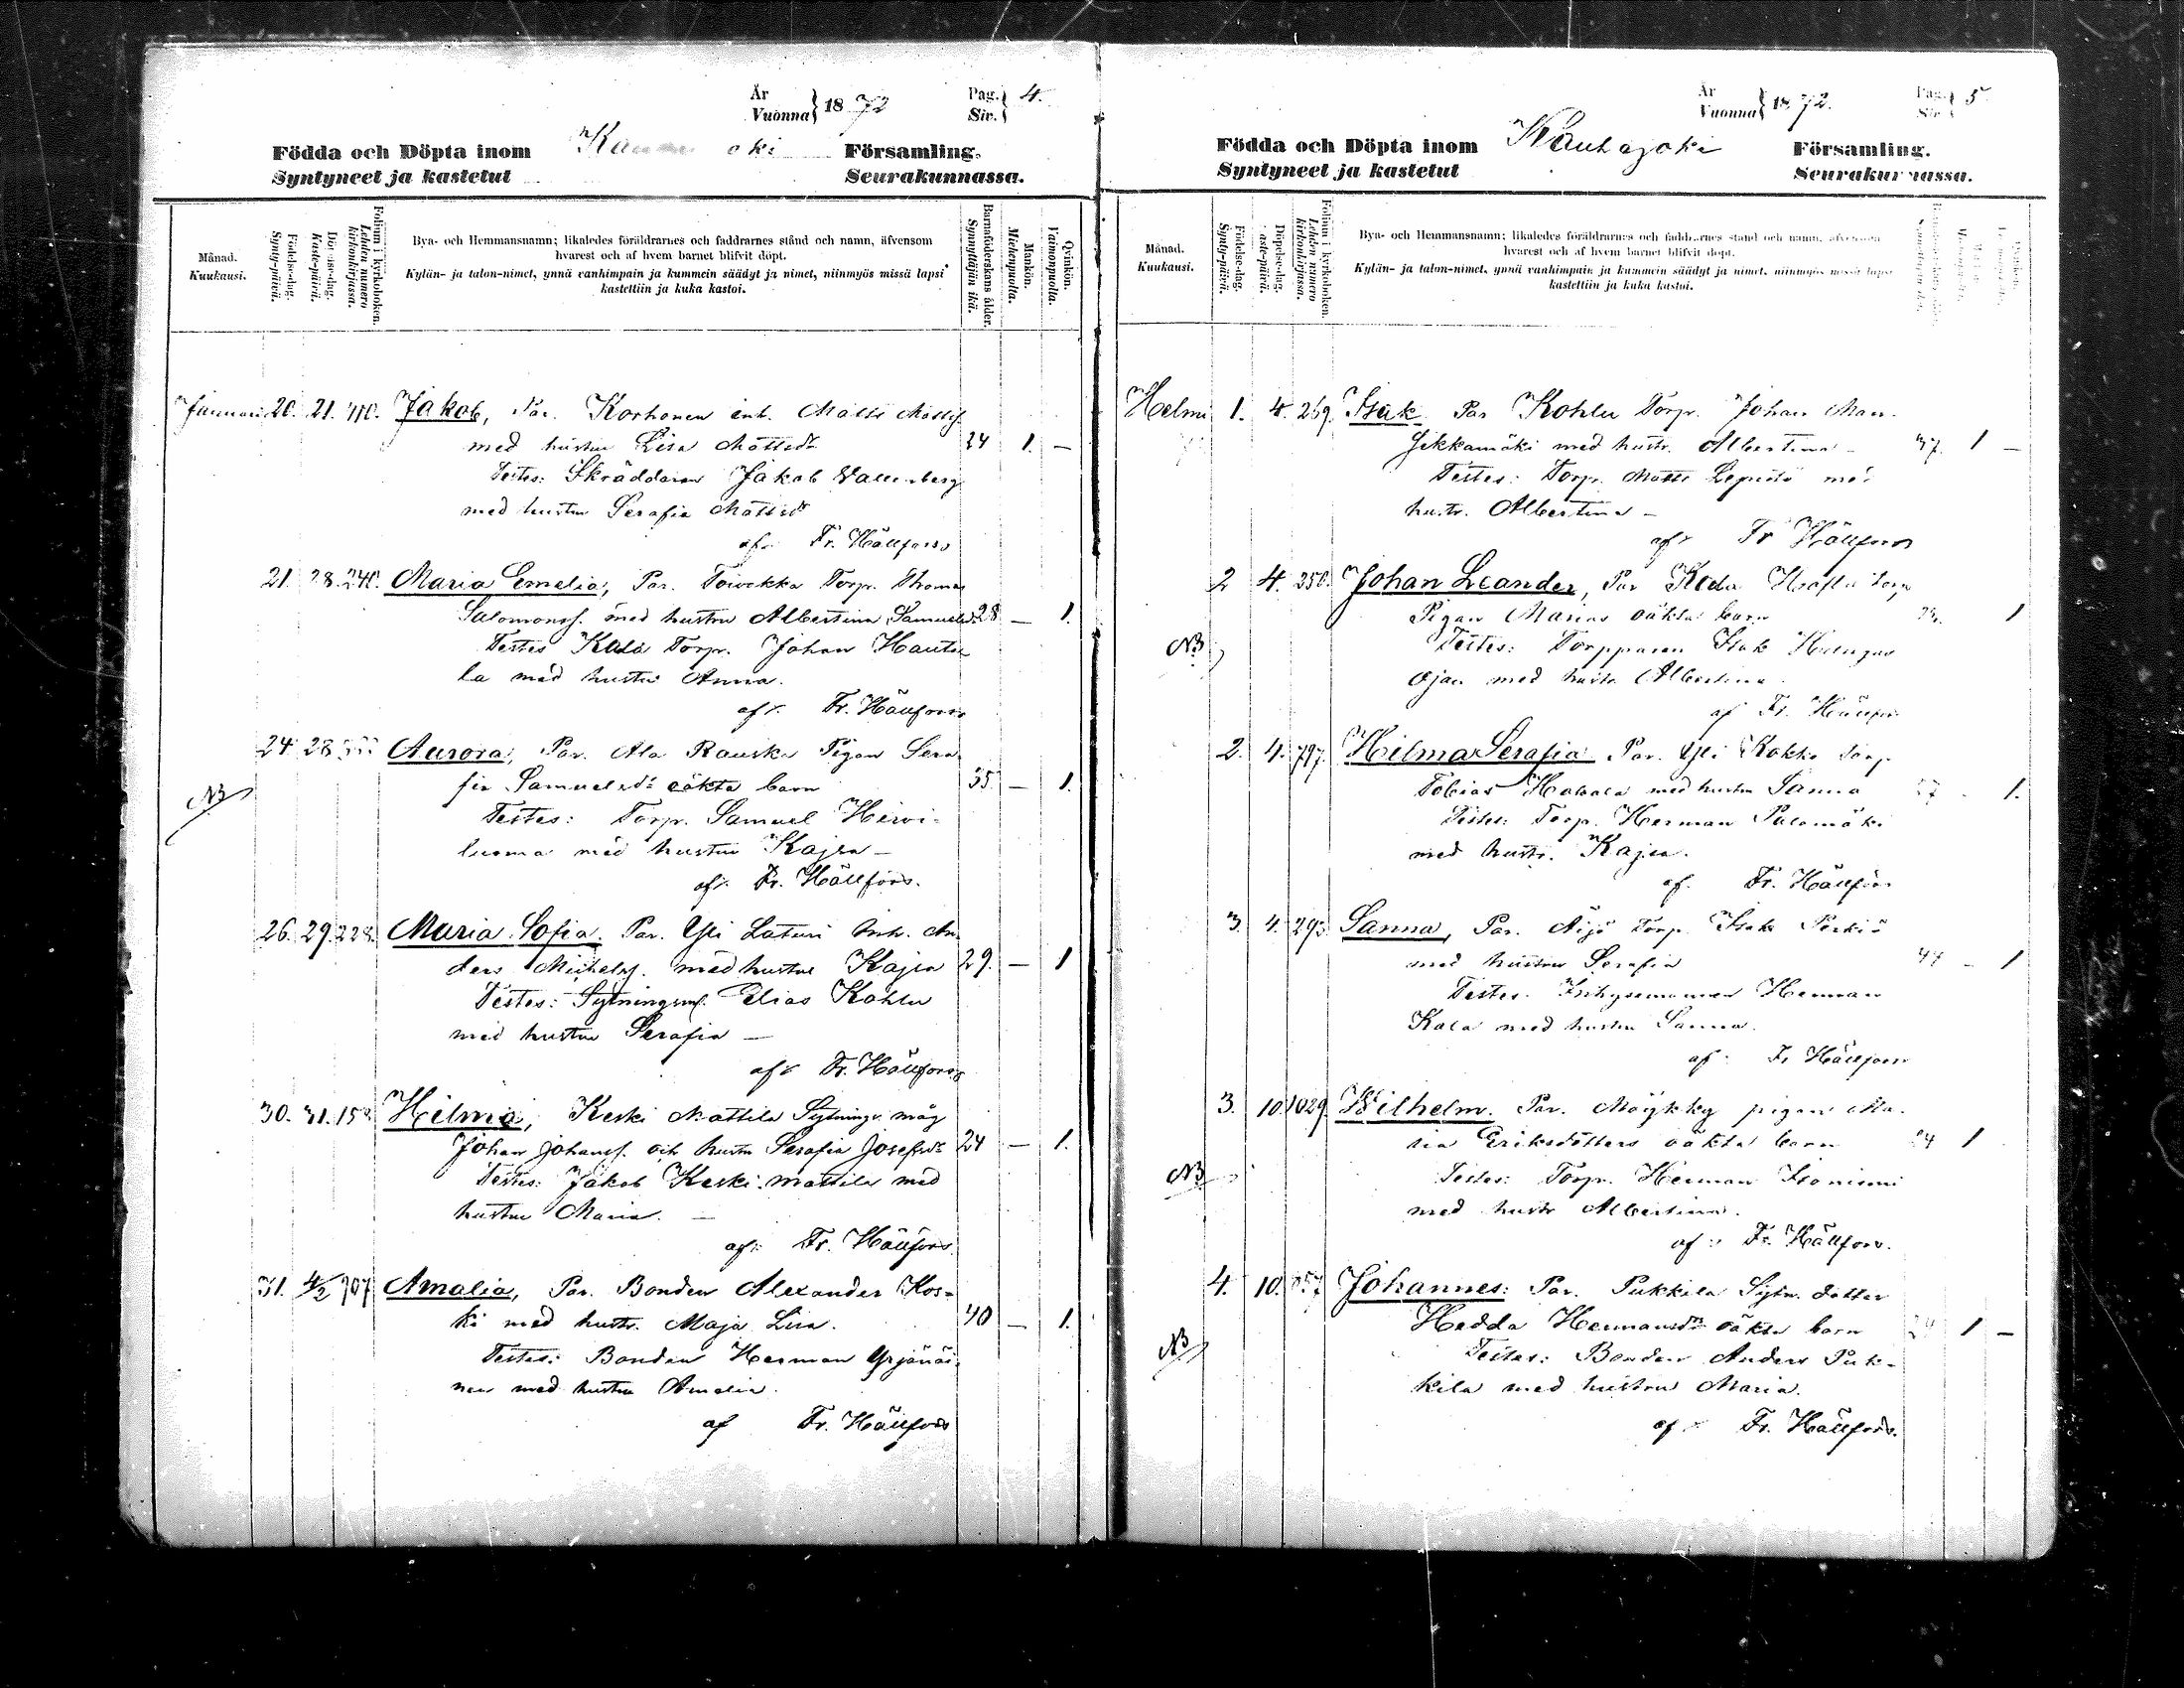 År
Vuonna} 1872
Pag.
Sir.} 4.
Födda och Döpta inom Församling.
Syntyneet ja kastetut Seurakunnassa.
Månad.
Kuukausi.
Födelse-dag.
Synty-päivä.
Döpelse-dag.
Kaste-päivä.
Folium i kyrkoboken.
Lehden numero kirkonkirjassa.
Bya- och Hemmansnamn; likaledes föräldrarnes och faddrarnes stånd och namn, äfvensom
hvarest och af hvem barnet blifvit döpt.
Kylän- ja talon-nimet, ynnä vanhimpain ja kummein säädyt ja nimet, niinmyös missä lapsi
kastettiin ja kuka kastoi.
Barnaföderskans ålder.
Synnyttäjän ikä.
Mankön.
Miehenpuolta.
Qvinkön.
Vaimonpuolta.
Januari 20. 21. 410. Jakob, Par. Korhonen inh. Matts Mattsf
med hustru Lisa Mattsdr 24 1. —
Testes: Skräddaren Jakob Wallenberg
med hustru Serafia Mattsdr
af: Fr. Hällfors
21. 28. 240. Maria Emelia, Par. Toivakka Torp. Thomas
Salomonsf. med hustru Albertina Samuelsd. 28 — 1.
Testes Kala Torp. Johan Hauta
la med hustru Anna.
af: Fr. Hällfors
24 28 Aurora, Par. Ala Rauska Pigan Sera
fia Samuelsdr oäkta barn 35 — 1.
NB
Testes: Torp. Samuel Hirvi-
luoma med hustru Kajsa —
af: Fr. Hällfors.
26. 29. 228. Maria Sofia. Par. Yli Laturi Inh. An
ders Michelsf. med hustru Kajsa 29. — 1
Testes: Sytningsm. Elias Kohlu
med hustru Serafia —
af: Fr. Hällfors
30. 31. 158 Hilma, Keski Mattila Sytnings måg
Johan Johansf. och hustru Serafia Josefsdr 24 — 1.
Testes: Jakob Keski-mattila med
hustru Maria. —
af: Fr. Hällfors.
31. 4/2 707 Amalia, Par. Bonden Alexander Kos-
ki med hustr. Maja Lisa. 40 — 1.
Testes: Bonden Herman Yrjänäi-
nen med hustru Amalia.
af Fr. Hällfors
År
Vuonna} 1872.
Pag.
Sir.} 5
Födda och Döpta inom Kauhajoki Församling.
Syntyneet ja kastetut Seurakunnassa.
Månad.
Kuukausi.
Födelse-dag.
Synty-päivä.
Döpelse-dag.
Kaste-päivä.
Folium i kyrkoboken.
Lehden numero kirkonkirjassa.
Bya- och Hemmansnamn; likaledes föräldrarnes och faddrarnes stånd och namn, äfvensom
hvarest och af hvem barnet blifvit döpt.
Kylän- ja talon-nimet, ynnä vanhimpain ja kummein säädyt ja nimet, niinmyös missä lapsi
kastettiin ja kuka kastoi.
Helmi 1. 4. 269. Isak Par Kohlu Torp. Johan Man-
med hustr. Albertina 37. 1 —
Testes: Torp. Matts Lepistö med
hustr. Albertina —
af: Fr Hällfors
2 4. 250. Johan Leander, Par Torp
Pigan Marias oäkta barn 1
NB
Testes: Torpparen Isak
ojan med hustr Albertina
af Fr. Hällfors
2. 4. 797. Hilma Serafia Par. Yli Kokko Torp.
Tobias med hustru Sanna 27 - 1.
Testes: Torp. Herman Palomäki
med hustr. Kajsa.
af. Fr. Hällfors
3. 4. Sanna, Par. Äijö Torp. Isak
med hustru Serafia 44 - 1
Testes. Herman
Kala med hustru Sanna.
af: Fr Hällfors
3. 10. 1029. Wilhelm. Par. Möykky pigan Ma-
ria Eriksdotters oäkta barn 24 1
NB
Testes: Torp. Herman Isoniemi
med hustr Albertina.
af: Fr. Hällfors.
4. 10. Johannes: Par. Pukkila Sytn. dotter
Hedda Hermansdr oäkta barn 24 1 —
NB
Testes: Bonden Anders Puk-
kila med hustru Maria.
af Fr. Hällfors.